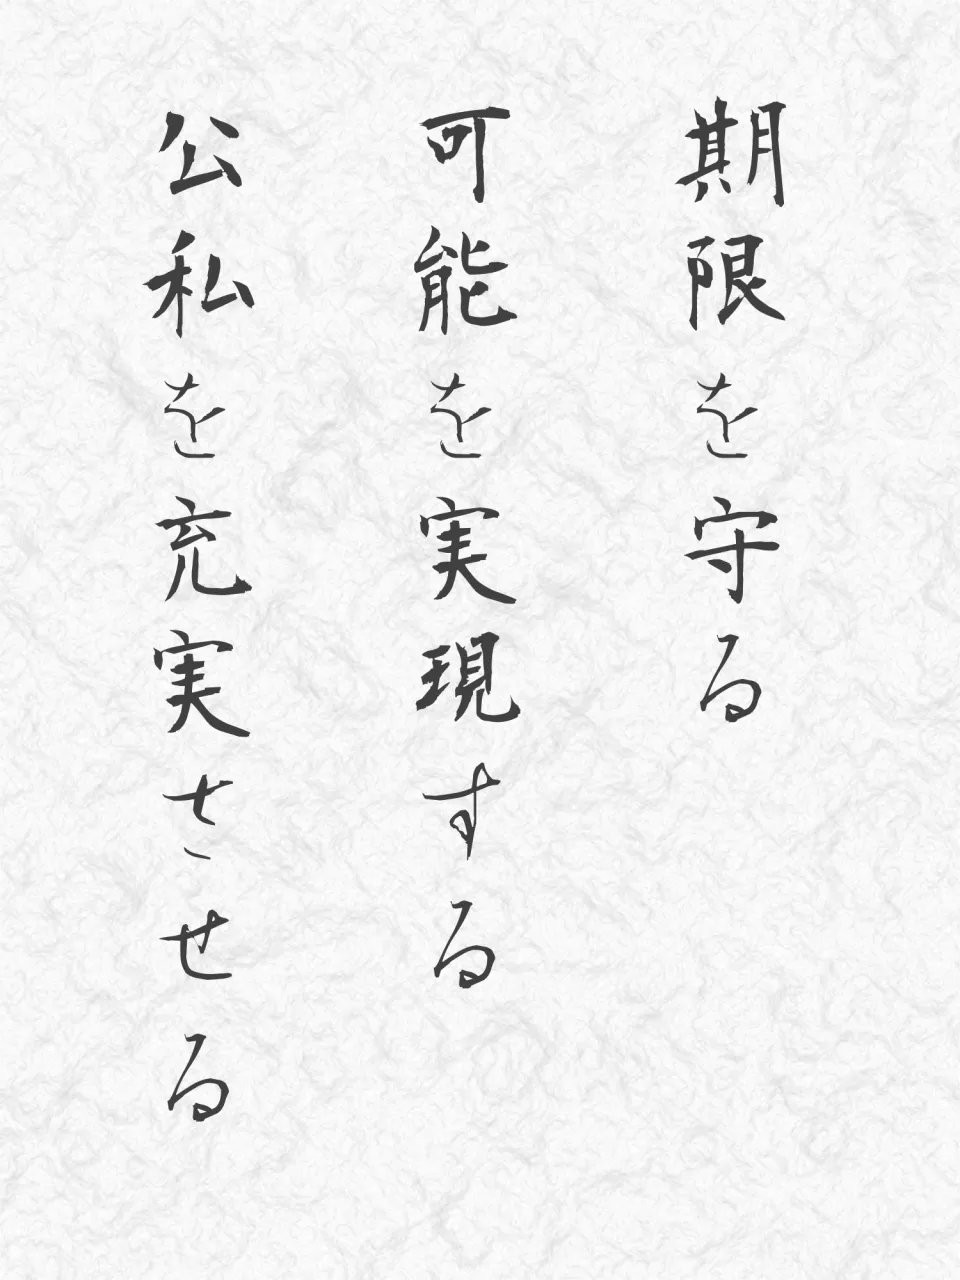 期限を守る
可能を実現する
公私を充実させる